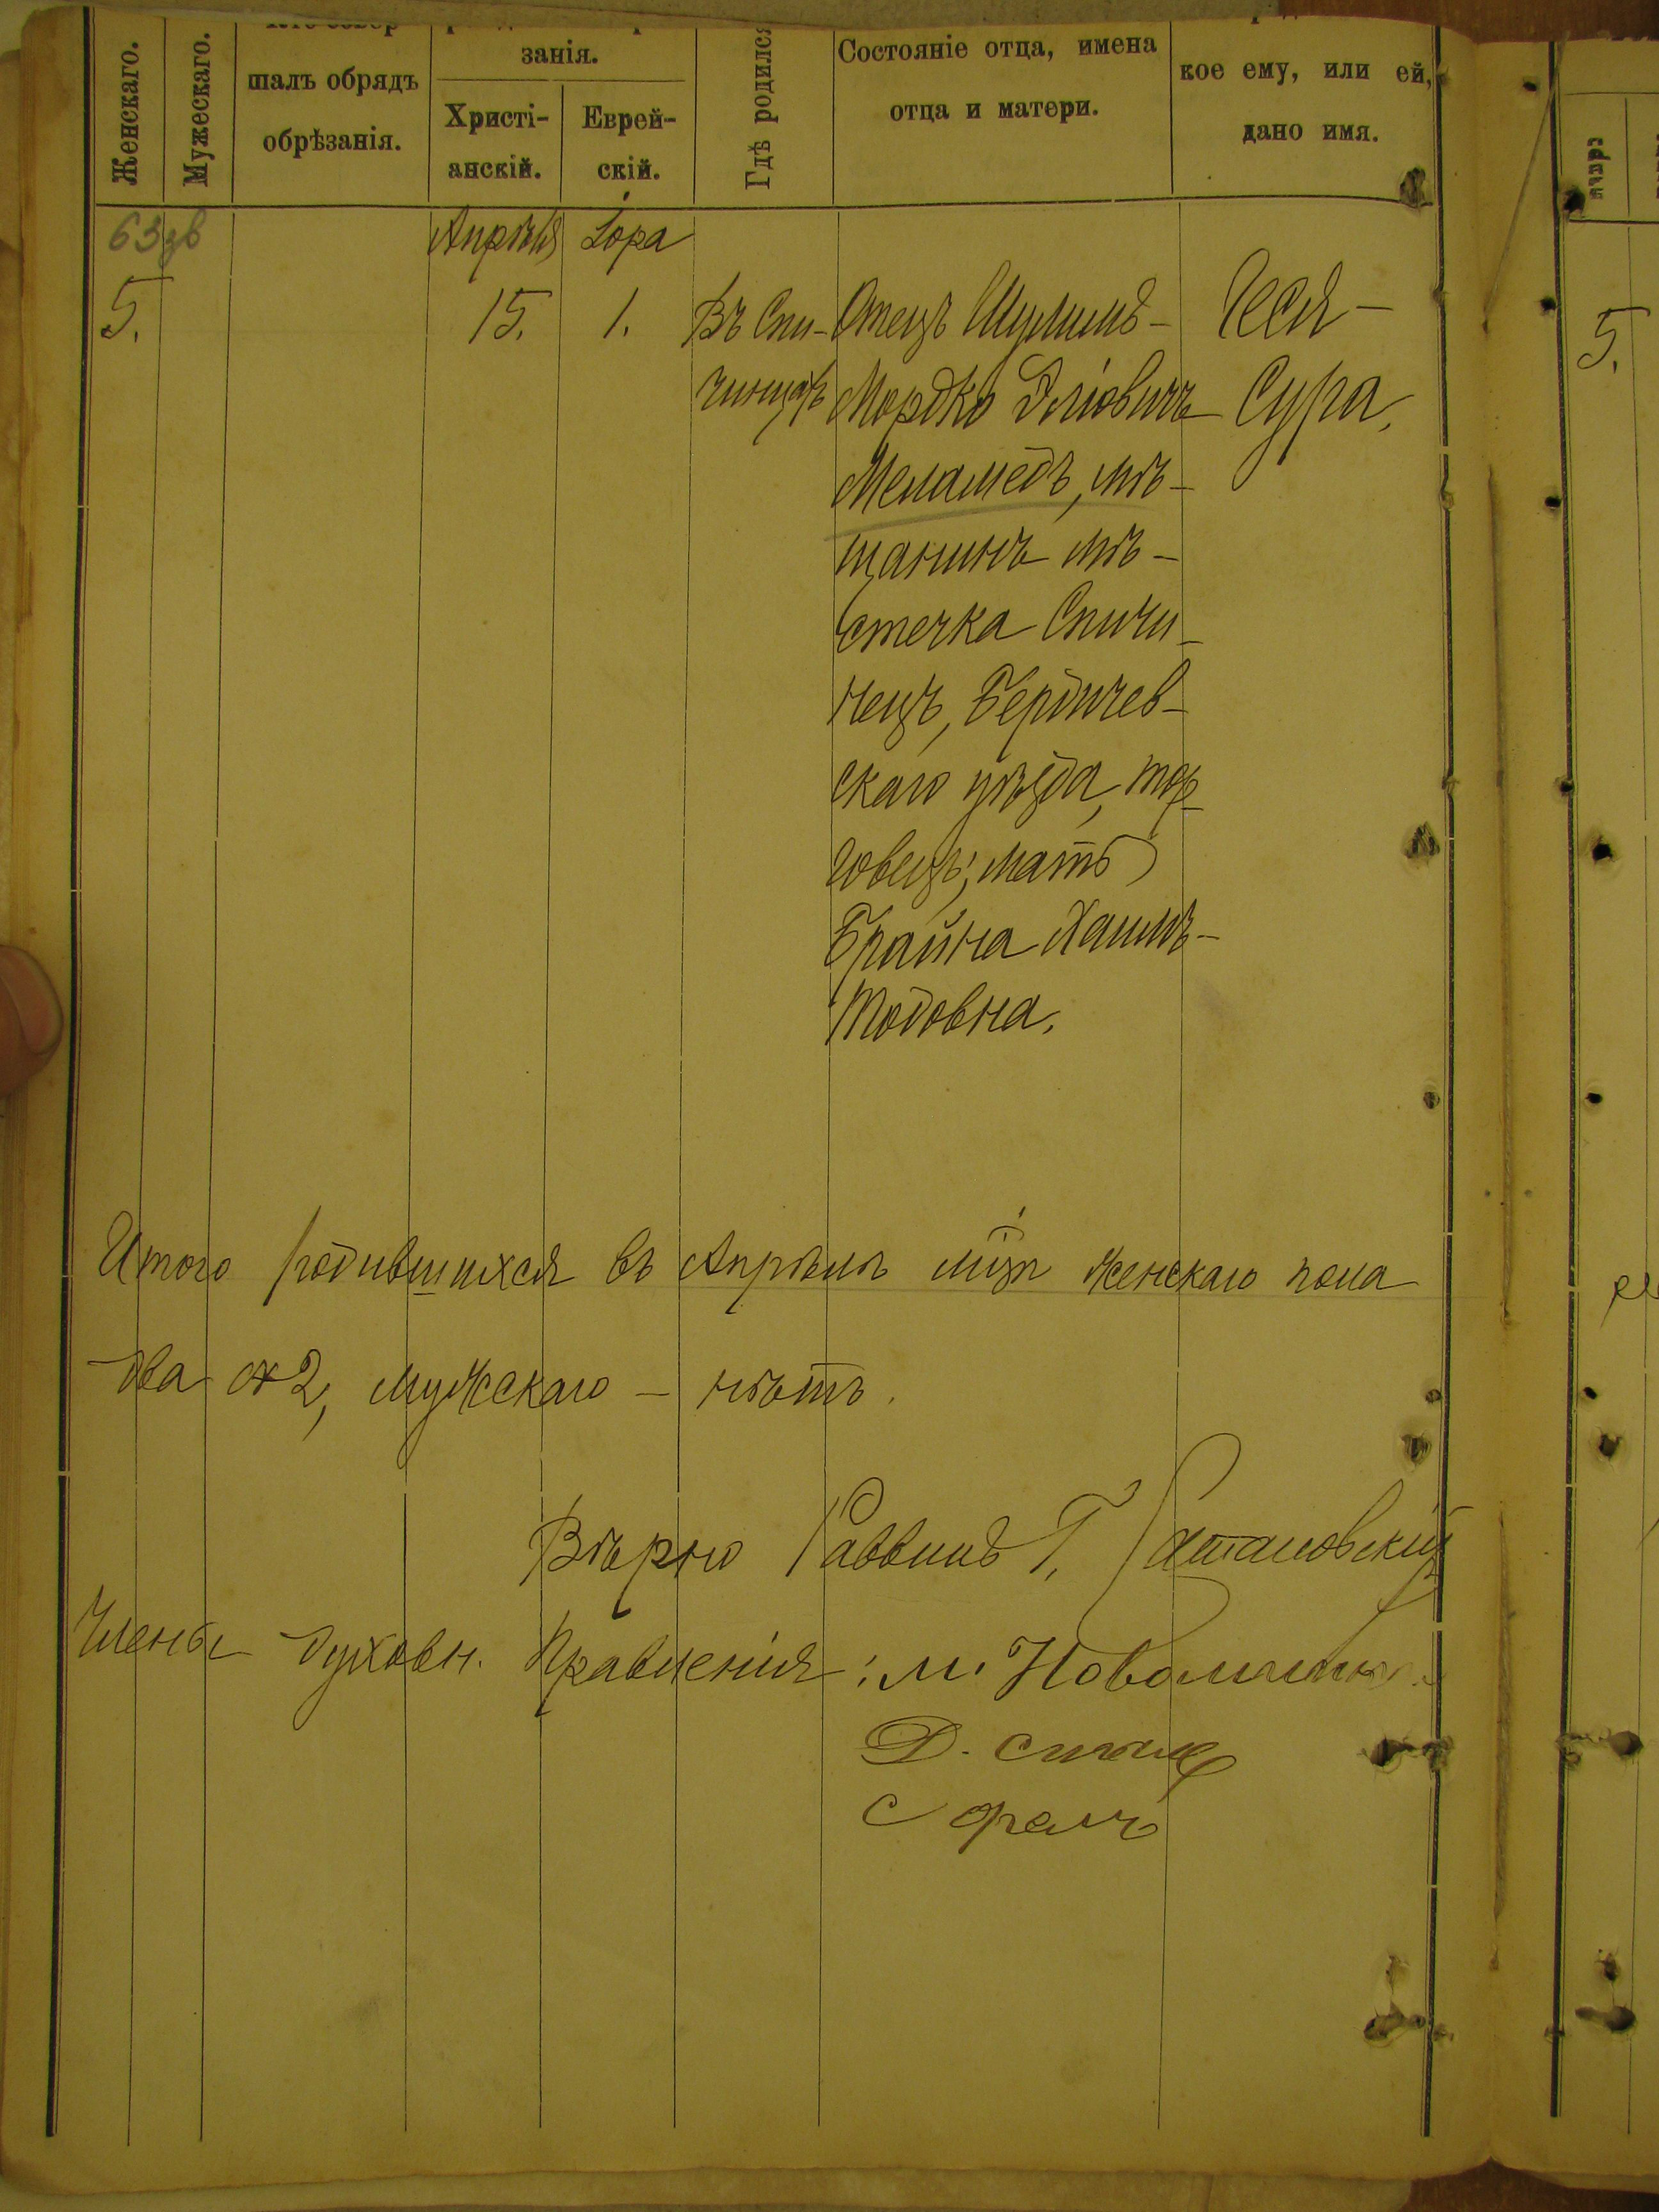 Женскаго.
Мужескаго.
шалъ обрядъ
обрѣзанія.
занія.
Христі-
анскій.
Еврей-
скій.
Гдѣ родился
Состояніе отца, имена
отца и матери.
кое ему, или ей,
дано имя.
63 зв
Апрѣля
Іора
5.
15.
1.
Въ Спи-
чинцахъ
Отецъ Шулимъ-
Мордко Эліовичъ
Меламедъ, мѣ-
щанинъ мѣ-
стечка Спичи-
нецъ, Бердичев-
скаго уѣзда, тор-
говецъ; мать
Брайна Хаимъ-
Тодовна.
Чеся-
Сура.
5.
Итого родившихся въ Апрѣлѣ мцѣ женскаго пола
два 2, мужскаго - нѣтъ.
Вѣрно Раввинъ Г.
Члены Духовн. Правленія: М.
Д.
С